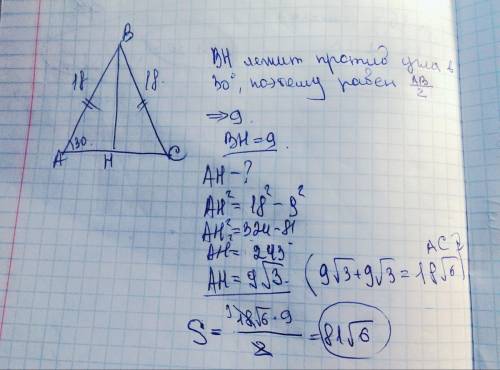 B
18 18
A 30 H C
BH лежит против угла в
30°, поэтому равен AB/2
⇒ 9.
BH = 9.
AH - ?
AH² = 18² - 9²
AH² = 324 - 81
AH² = 243
AH = 9√3. (9√3 + 9√3 = 18√6)
AC
S = 18√6 · 9 / 2 = 81√6